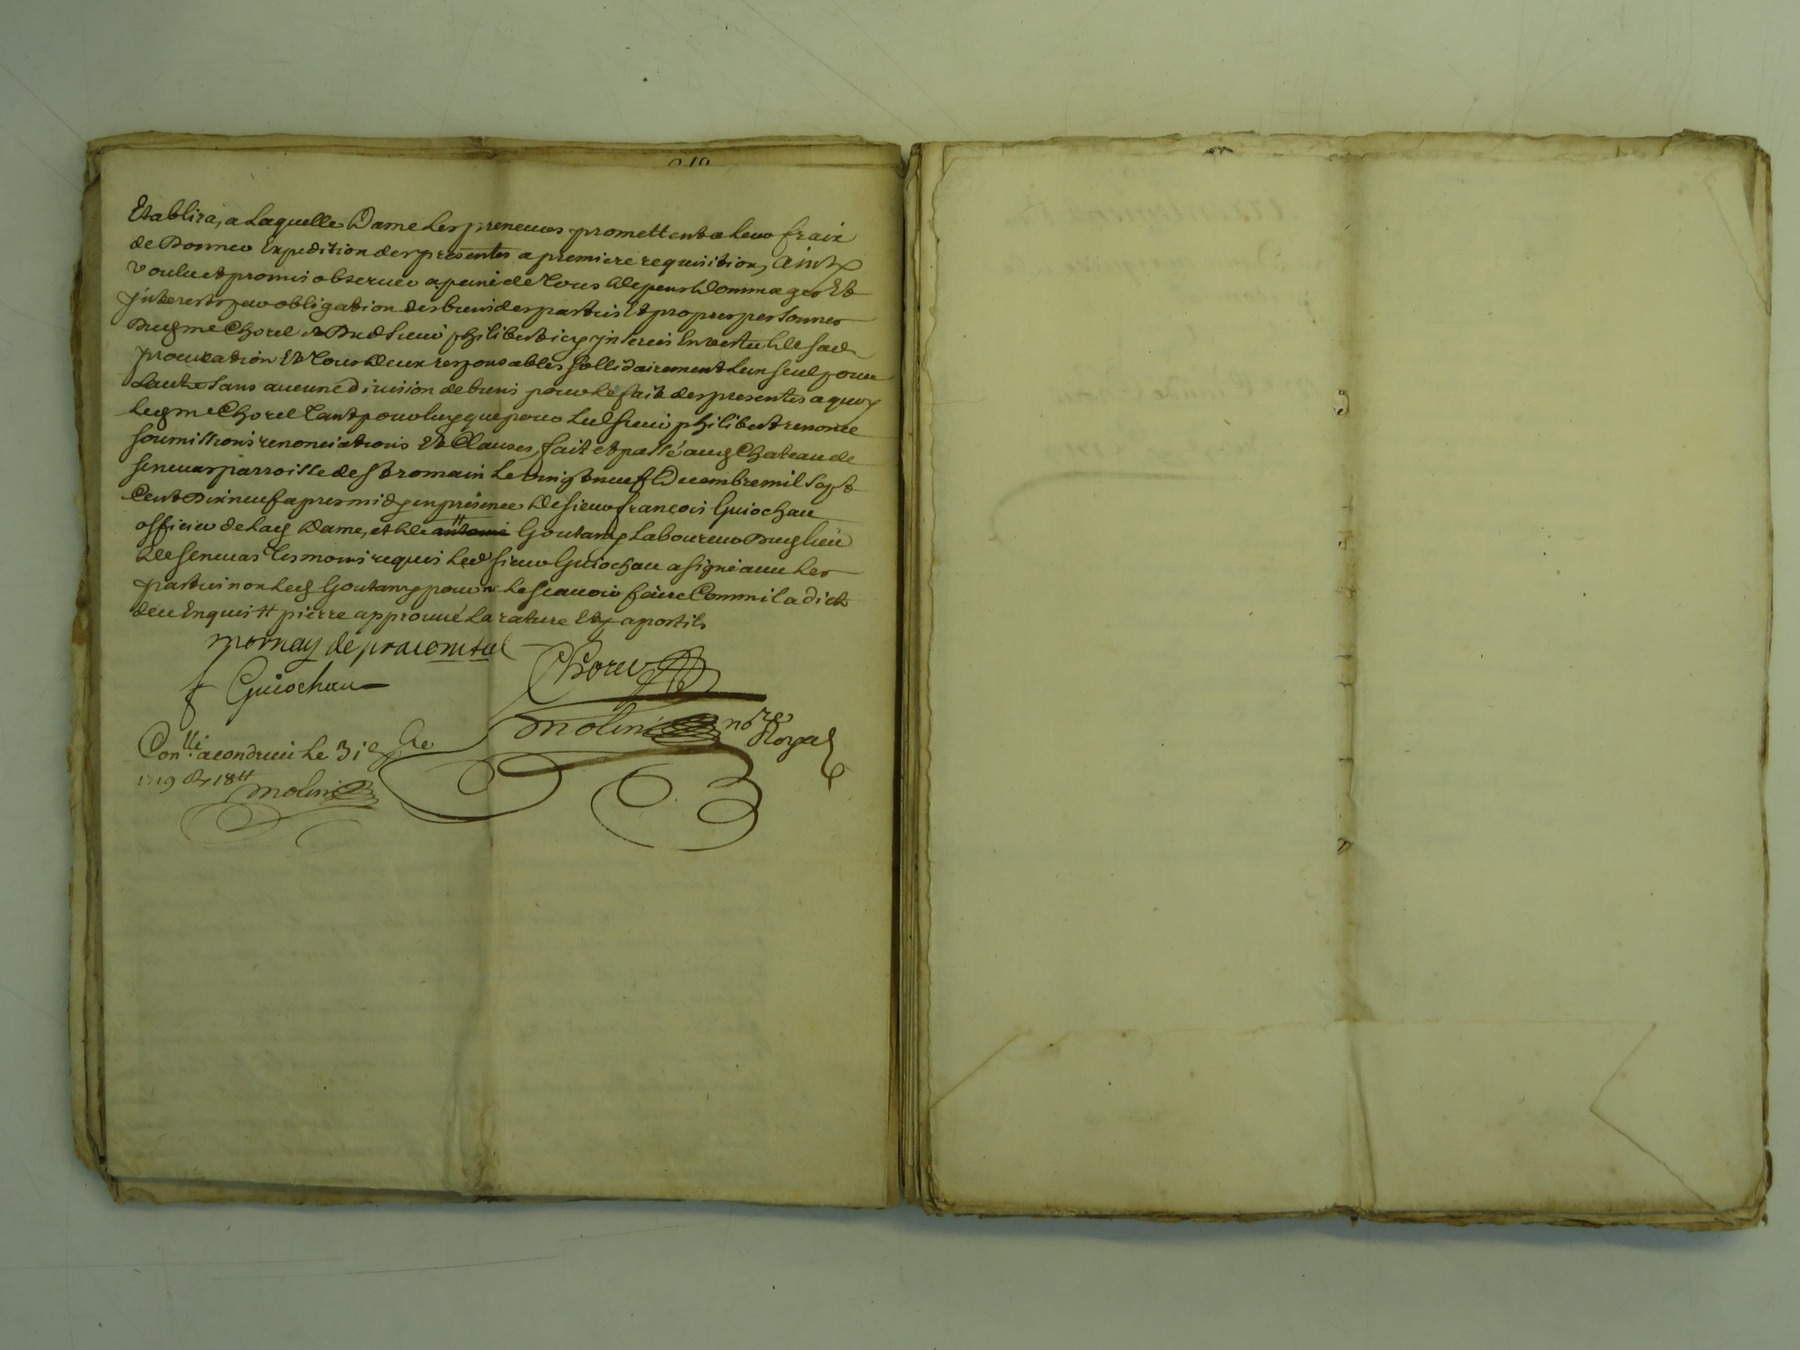 Etablira, a Laquelle Dame Les preneurs promettent a leur fraix
de Donner Expedition des presentes a premiere requisition, ainsy
voulu et promis observer a peine de Tous depens Dommages Et
jnterests par obligation des biens des parties Et propres personnes
Dud me Chorel et Dud sieur philibert icy jnserés En vertu de sad
procuration Et Tous Deux responsables sollidairement Lun seul pour
Lautre sans aucune Division de biens pour Le fait des presentes a quoy
Led me Chorel Tant pour luy que pour Led sieur philibert renonce
soumissions renonciations Et Clauses, fait et passé aud Chateau de
senevas parroisse de St romain Le vingt neuf Decembre mil Sept
Cent Dixneuf apres midy en presence de sieur françois Guiochau
officier de Lad Dame, et de antoine # Goutany Laboureur Dud lieu
de senevas Tesmoins requis Led sieur Guiochau a signé avec Les
parties non Led Goutany pour ne Le scavoir faire Comm il a dict
deu Enquis # pierre approuvé La rature Et apostile
mornay de pracomtal
Chorel
f Guiochau
molin nore Royal
Conllé a condrieu Le 31
1719 18 tt
molin